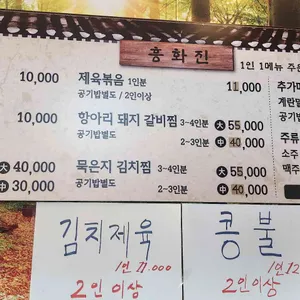 흥화진
1인 1메뉴 주문
10,000 제육볶음 1인분 11,000
공기밥별도 / 2인이상
추가메
계란
공기밥
10,000 항아리 돼지 갈비찜 3~4인분 大 55,000
공기밥별도 2~3인분 中 40,000
주류
소주
맥주
大 40,000 묵은지 김치찜 3~4인분 大 55,000
中 30,000 공기밥별도 2~3인분 中 40,000
김치제육
1인 11.000
2인 이상
콩불
1인 12
2인 이상